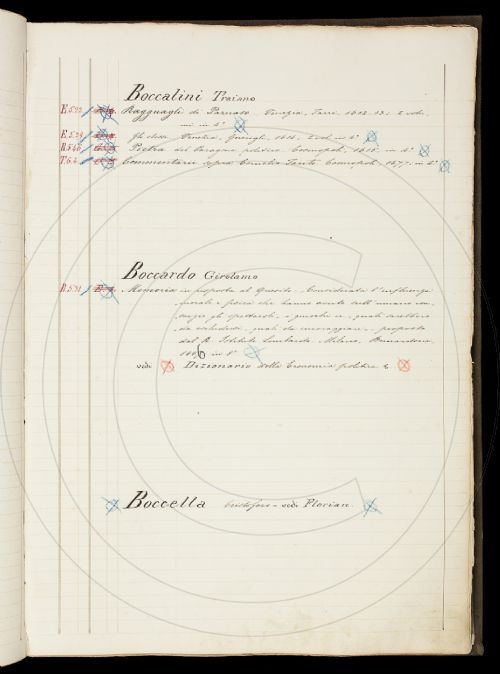 Boccalini Traiano
Ragguagli di Parnaso. Venezia, 1612-13; 2 vol.
in 4°
Gli stessi. Venetia, Guerigli, 1616; 2 vol. in 4°
Pietra del Paragone politico. Cosmopoli, 1615. in 4°
Commentarii sopra Cornelio Tacito. Cosmopoli, 1677. in 4°
Boccardo Girolamo
R.531 Memoria in risposta al Quesito: Considerata l'influenza
morale e fisica che hanno avuto sull'umano con-
gli spettacoli e giuochi
da escludersi, quali da incoraggiarsi, proposto
dal R. Istituto Lombardo. Milano, Bernardoni,
in 8°
vedi Dizionario della Economia politica
Boccella Cristoforo - vedi Florian.